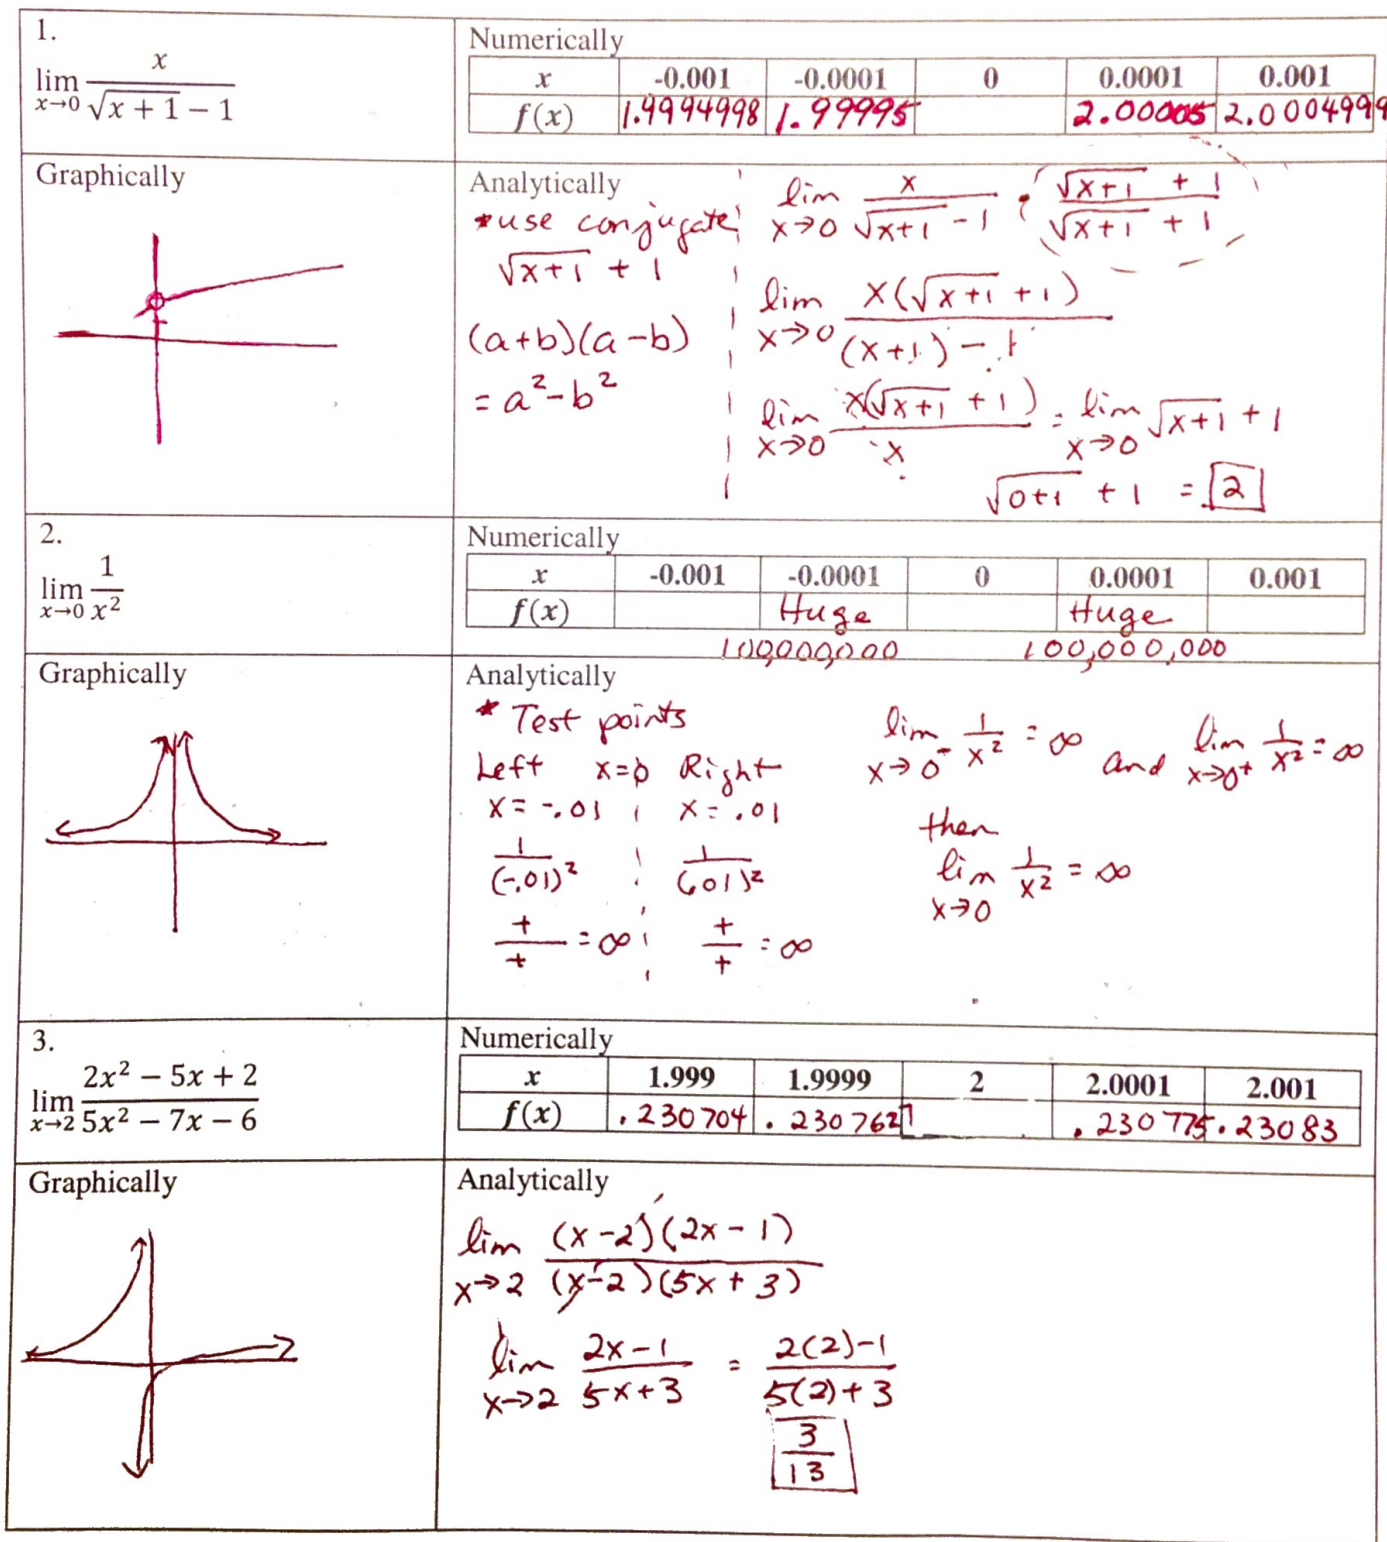 1.
lim x→0 x / (√(x + 1) − 1)
Numerically
x -0.001 -0.0001 0 0.0001 0.001
f(x) 1.9994998 1.99995 2.00005 2.0004999
Graphically
Analytically
*use conjugate
√(x+1) + 1
(a+b)(a-b)
= a² - b²
lim x→0 x / (√(x+1) - 1) · (√(x+1) + 1) / (√(x+1) + 1)
lim x→0 x(√(x+1) + 1) / ((x+1) - 1)
lim x→0 x(√(x+1) + 1) / x = lim x→0 √(x+1) + 1
√(0+1) + 1 = 2
2.
lim x→0 1 / x²
Numerically
x -0.001 -0.0001 0 0.0001 0.001
f(x) Huge Huge
100,000,000 100,000,000
Graphically
Analytically
* Test points
Left x=0 Right
x = -.01 x = .01
1 / (-.01)² 1 / (.01)²
+ / + = ∞ + / + = ∞
lim x→0⁻ 1/x² = ∞ and lim x→0⁺ 1/x² = ∞
then
lim x→0 1/x² = ∞
3.
lim x→2 (2x² − 5x + 2) / (5x² − 7x − 6)
Numerically
x 1.999 1.9999 2 2.0001 2.001
f(x) .230704 .230762 .230775 .23083
Graphically
Analytically
lim x→2 (x-2)(2x-1) / (x-2)(5x+3)
lim x→2 (2x-1) / (5x+3) = (2(2)-1) / (5(2)+3)
3/13